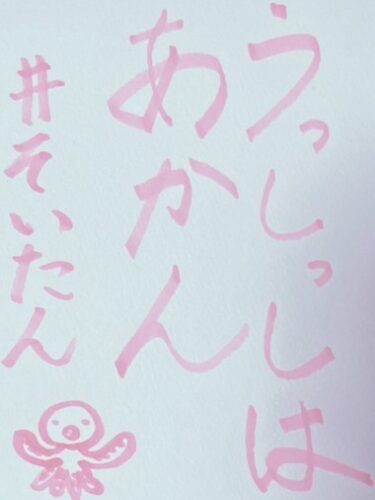 うっしっしは
あかん
#そいたん